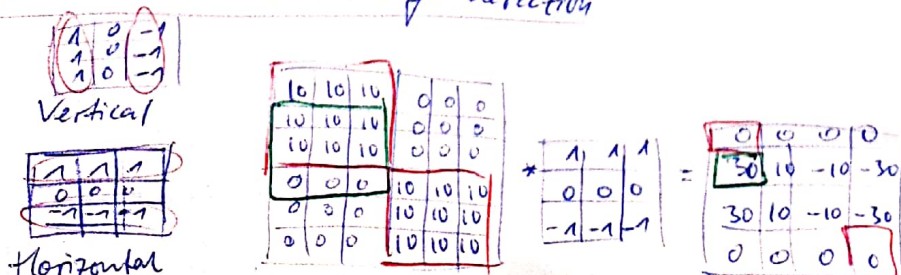 1 0 -1
1 0 -1
1 0 -1
Vertical
1 1 1
0 0 0
-1 -1 -1
Horizontal
10 10 10 0 0 0
10 10 10 0 0 0
10 10 10 0 0 0
0 0 0 10 10 10
0 0 0 10 10 10
0 0 0 10 10 10
*
1 1 1
0 0 0
-1 -1 -1
=
0 0 0 0
30 10 -10 -30
30 10 -10 -30
0 0 0 0